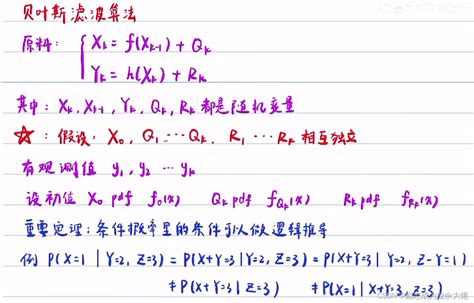 贝叶斯滤波算法
原料: { Xₖ = f(Xₖ₋₁) + Qₖ
Yₖ = h(Xₖ) + Rₖ
其中: Xₖ, Xₖ₋₁, Yₖ, Qₖ, Rₖ 都是随机变量
☆: 假设: X₀, Q₁ ⋯ Qₖ, R₁ ⋯ Rₖ 相互独立
有观测值 y₁, y₂ ⋯ yₖ
设初值 X₀ pdf f₀(x) Qₖ pdf f_Qₖ(x) Rₖ pdf f_Rₖ(x)
重要定理: 条件概率里的条件可以做逻辑推导
例 P(X=1 | Y=2, Z=3) = P(X+Y=3 | Y=2, Z=3) = P(X+Y=3 | Y=2, Z-Y=1)
≠ P(X+Y=3 | Z=3) ≠ P(X=1 | X+Y=3, Z=3)